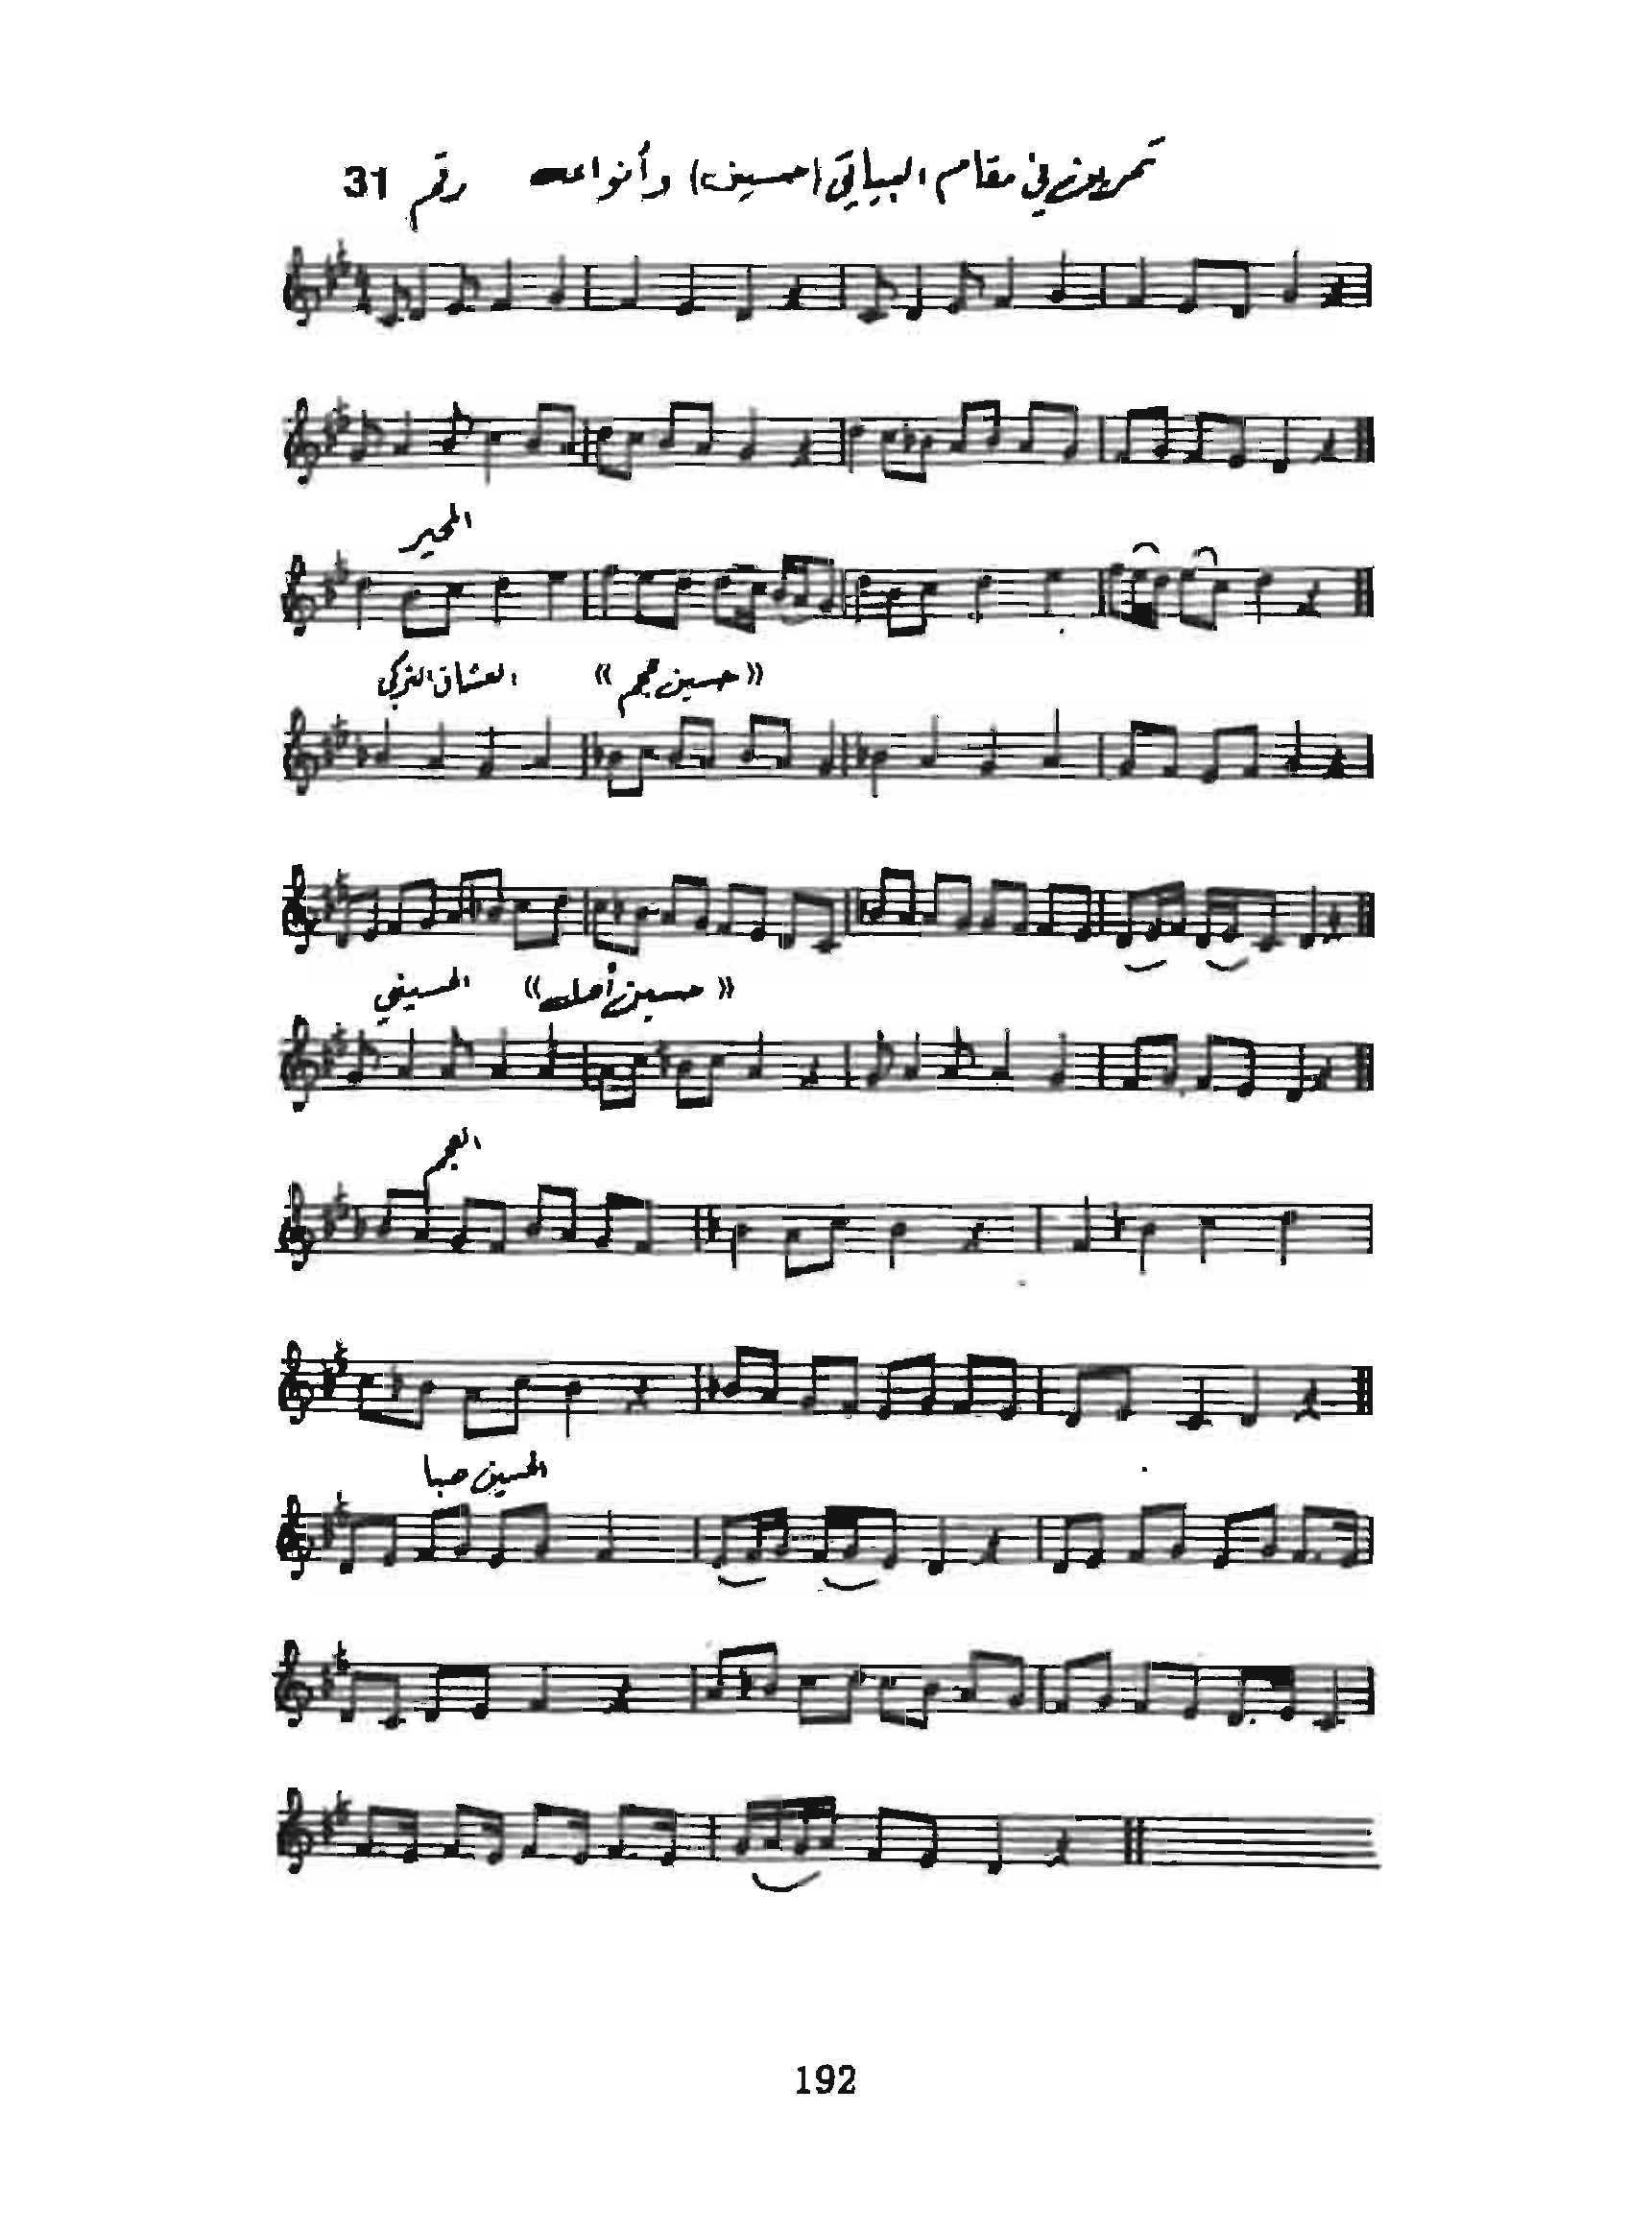 تمرين في مقام البياتي (حسين) وأنواعه رقم 31
المحير
العشاق التركي « حسين عجم »
الحسيني « حسين أصل »
العجم
الحسين صبا
192